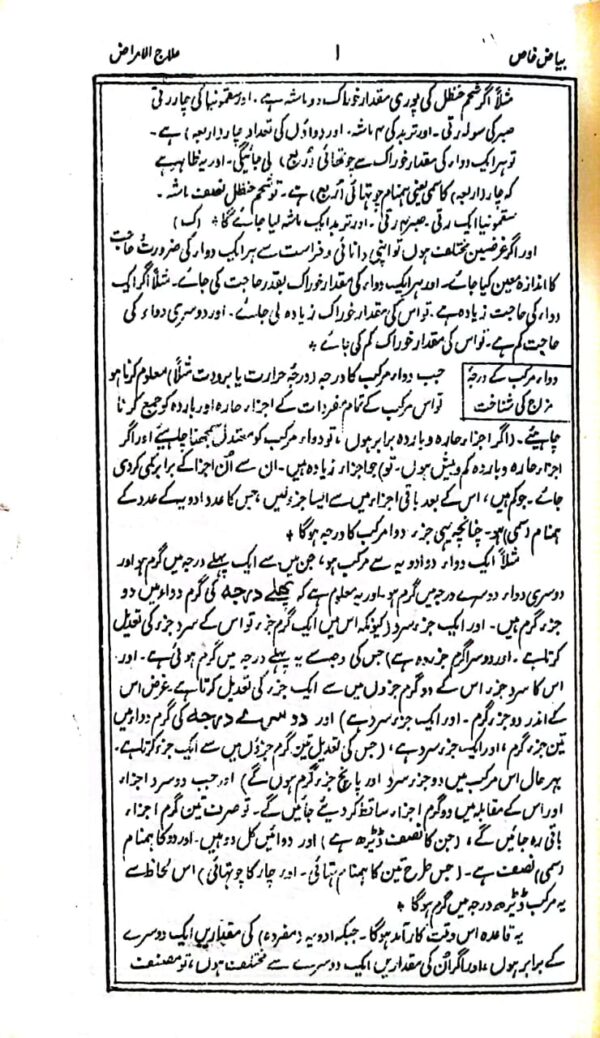 بیاض خاص
۱
علاج الامراض
مثلاً اگر شحم حنظل کی پوری مقدار خوراک دو ماشہ ہے۔ اور سقمونیا کی چار رتی
صبر کی سولہ رتی۔ اور تربد کی ۴ ماشہ۔ اور دواؤں کی تعداد چار (اربعہ) ہے۔
تو ہر ایک دواء کی مقدار خوراک سے چوتھائی (ربع) لی جائیگی۔ اور یہ ظاہر ہے
کہ چار (اربعہ) کا سمی یعنی ہمنام چوتھائی (ربع) ہے۔ تو شحم حنظل نصف ماشہ۔
سقمونیا ایک رتی۔ صبر ۴ رتی۔ اور تربد ایک ماشہ لیا جائے گا * (ک)
اور اگر غرضیں مختلف ہوں تو اپنی دانائی و فراست سے ہر ایک دواء کی ضرورت و حاجت
کا اندازہ معین کیا جائے۔ اور ہر ایک دواء کی مقدار خوراک بقدر حاجت کی جائے۔ مثلاً اگر ایک
دواء کی حاجت زیادہ ہے۔ تو اس کی مقدار خوراک زیادہ لی جائے۔ اور دوسری دواء کی
حاجت کم ہے۔ تو اس کی مقدار خوراک کم کی جائے *
دواء مرکب کے درجۂ
مزاج کی شناخت
جب دواء مرکب کا درجہ (درجۂ حرارت یا برودت مثلاً) معلوم کرنا ہو
تو اس مرکب کے تمام مفردات کے اجزاء حارہ اور باردہ کو جمع کرنا
چاہیئے۔ (اگر اجزاء حارہ و باردہ برابر ہوں، تو دواء مرکب کو معتدل سمجھنا چاہیئے اور اگر
اجزاء حارہ و باردہ کم و بیش ہوں۔ تو) جو اجزاء زیادہ ہیں۔ ان سے اُن اجزا کے برابر کمی کردی
جائے۔ جو کم ہیں، اس کے بعد باقی اجزاء میں سے ایسا جزء لیں، جس کا عدد ادویہ کے عدد کے
ہمنام (سمی) ہو۔ چنانچہ یہی جزء دوا مرکب کا درجہ ہوگا *
مثلاً ایک دواء دو ادویہ سے مرکب ہو، جن میں سے ایک پہلے درجہ میں گرم ہو اور
دوسری دواء دوسرے درجہ میں گرم ہو۔ اور یہ معلوم ہے کہ پہلے درجہ کی گرم دواء میں دو
جزء گرم ہیں۔ اور ایک جزء سرد (کیونکہ اس میں ایک گرم جزء تو اس کے سرد جزء کی تعدیل
کرتا ہے۔ اور دوسرا گرم جزء وہ ہے) جس کی وجہ سے یہ پہلے درجہ میں گرم ہوئی ہے۔ اور
اس کا سرد جزء اس کے دو گرم جزوں میں سے ایک جزء کی تعدیل کرتا ہے۔ غرض اس
کے اندر دو جزء گرم۔ اور ایک جزء سرد ہے) اور دوسرے درجہ کی گرم دواء میں
تین جزء گرم، اور ایک جزء سرد ہے، (جس کی تعدیل تین گرم جزؤں میں سے ایک جزء کرتا ہے۔
بہر حال اس مرکب میں دو جزء سرد اور پانچ جزء گرم ہوں گے) اور جب دو سرد اجزاء
اور اس کے مقابلہ میں دو گرم اجزاء ساقط کر دیئے جائیں گے۔ تو صرف تین گرم اجزاء
باقی رہ جائیں گے، (جن کا نصف ڈیڑھ ہے) اور دوائیں کل دو ہیں۔ اور دو کا ہمنام
(سمی) نصف ہے۔ (جس طرح تین کا ہمنام تہائی۔ اور چار کا چوتھائی) اس لحاظ سے
یہ مرکب ڈیڑھ درجہ میں گرم ہوگا *
یہ قاعدہ اس وقت کارآمد ہوگا۔ جبکہ ادویہ (مفردہ) کی مقداریں ایک دوسرے
کے برابر ہوں، اور اگر اُن کی مقداریں ایک دوسرے سے مختلف ہوں، تو مصنف